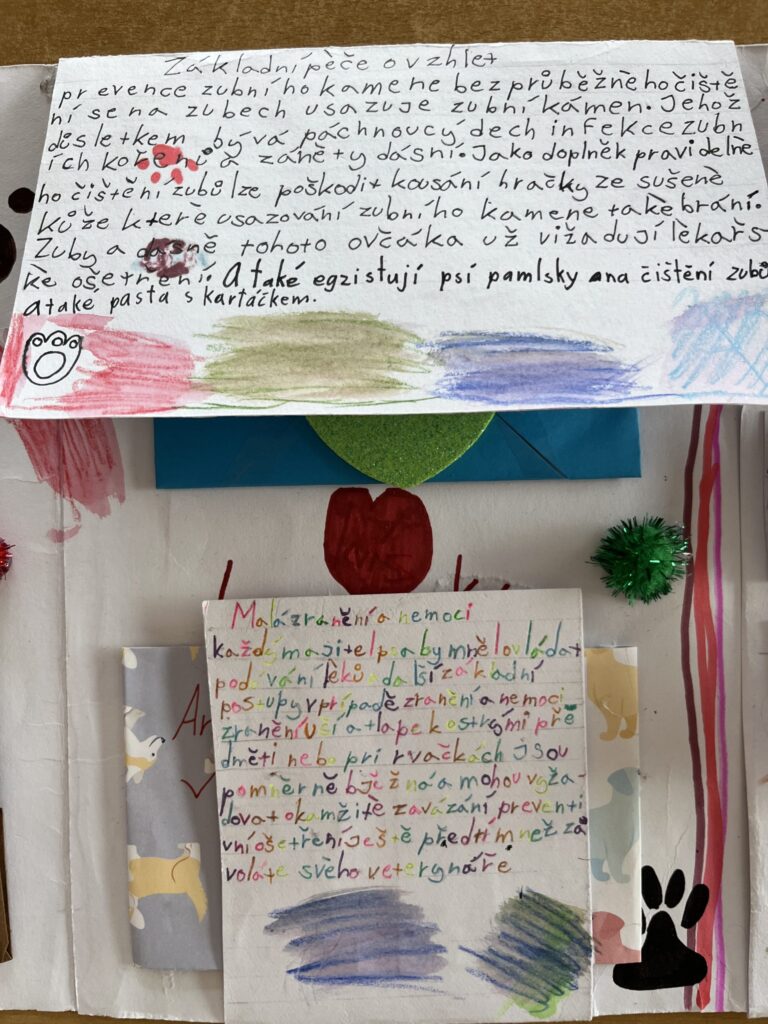 Základní pèče o vzhlet
prevence zubního kamene bez průběžného čiště
ní se na zubech usazuje zubní kámen. Jehož
důsletkem bývá páchnoucý dech infekce zubn
ích kořenů a záněty dásní. Jako doplněk pravidelně
ho čištění zubů lze poškodit kousání hračky ze sušeně
kůže kterè usazování zubního kamene také brání.
Zuby a dásně tohoto ovčáka už vižadují lékařs-
ke ošetření. A také egzistují psí pamlsky na čištění zubů
a také pasta s kartáčkem.
Malá zranění a nemoci
každý majitel psa by mně lovládat
podávání léků a další základní
postupy v prípadě zranění a nemoci
zranění uší a tlapek ostrými pře
dměti nebo pri rvačkách jsou
poměrně bježná a mohou vyža-
dovat okamžitě zavázání preventi
vní ošetření ještě předtím než za
voláte svèho veterynáře